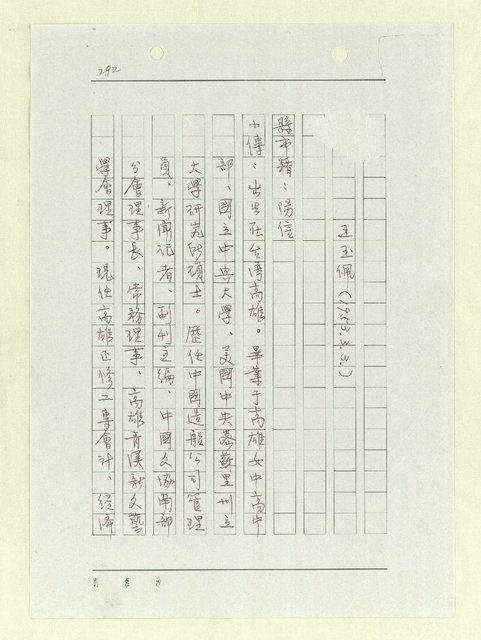 292
王玉佩(1953.3.3.)
縣市籍:陽信
小傳:出生在台湾高雄。畢業于高雄女中高中
部、國立中興大學、美國中央密蘇里州立
大學研究所碩士。歷任中國造船公司管理
員、新聞記者、副刊主編、中國文協南部
分會理事長、常務理事、高雄青溪新文藝
學會理事。現任高雄正修工專會計、經濟